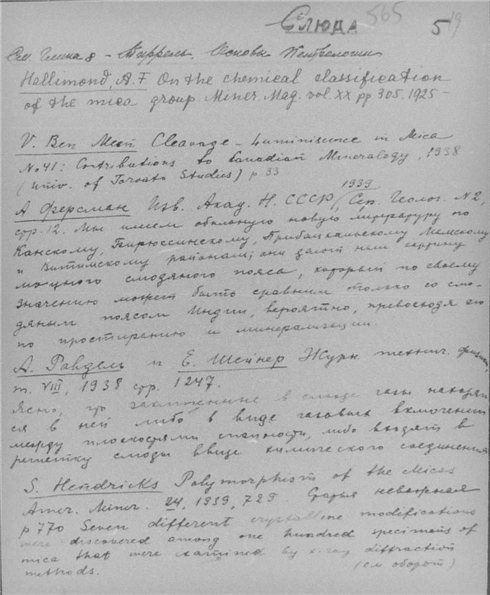 Слюда 565 5 19
См. Тиррель. Основы Петрологии
Hallimond, A.F. On the chemical classification
of the mica group. Miner. Mag. vol. XX pp 305. 1925 -
V. Ben Meen Cleavage - Luminiscence in Mica
No 41: Contributions to Canadian Mineralogy, 1938
(Univ. of Toronto Studies) p 33
А Ферсман Изв. Акад. Н. СССР, 1939 Сер. Геолог. N 2,
стр. 12. Мы имеем обильную новую литературу по
Канскому, Бирюссинскому, Прибайкальскому Мамскому
и Витимскому районам; они дают нам картину
мощного слюдяного пояса, который по своему
значению может быть сравним только со слю-
дяным поясом Индии, вероятно, превосходя его
по простиранию и минерализации.
А. Равдель и Е. Шейнер Журн. технич. физики,
т. VIII, 1938 стр. 1247.
Ясно, что заключенные в слюде газы находят-
ся в ней либо в виде газовых включений
между плоскостями спайности, либо входят в
решетку слюды ввиде химического соединения
S. Hendricks Polymorphism of the Micas
Amer. Miner. 24, 1939, 729
p 770 Seven different crystalline modifications
were discovered among one hundred specimens of
mica that were examined by x-ray diffraction
methods. (см оборот)